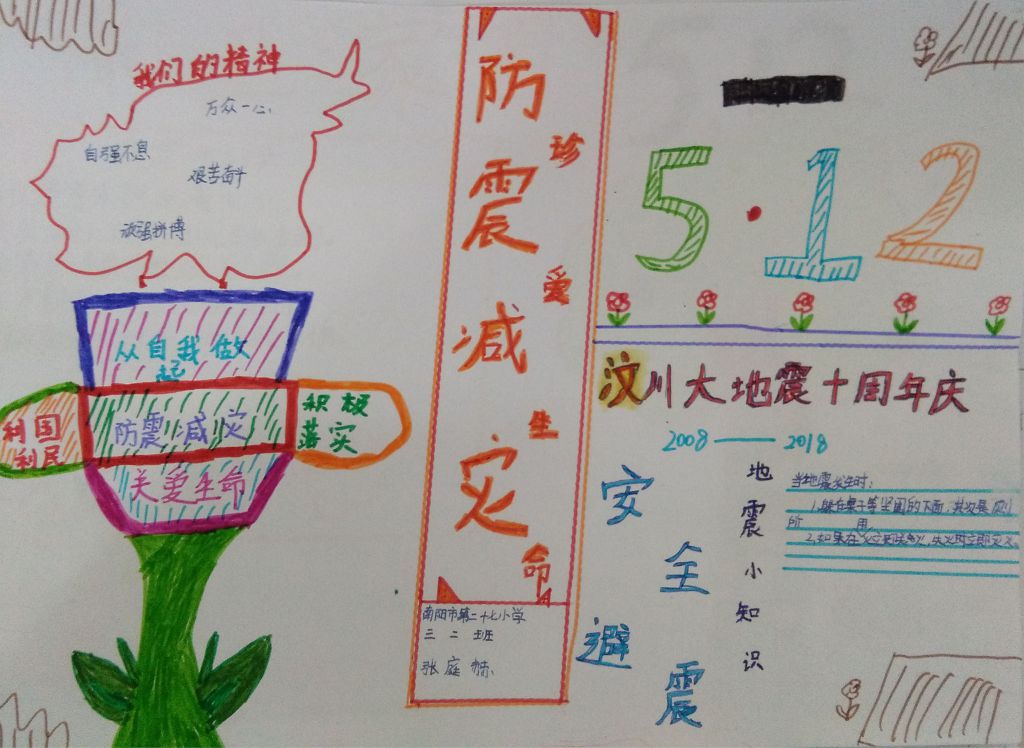 我们的精神
万众一心、
自强不息
艰苦奋斗
顽强拼博
从自我做
起
利国
利民
防震减灾
积极
落实
关爱生命
防震减灾
珍爱生命
南阳市第二十七小学
三二班
张庭
5·12
汶川大地震十周年庆
2008——2018
安全避震
地震小知识
当地震发生时：
1.躲在桌子等坚固的下面，其次是
所 用
2.如果在 立即 火，失火时立即灭火。